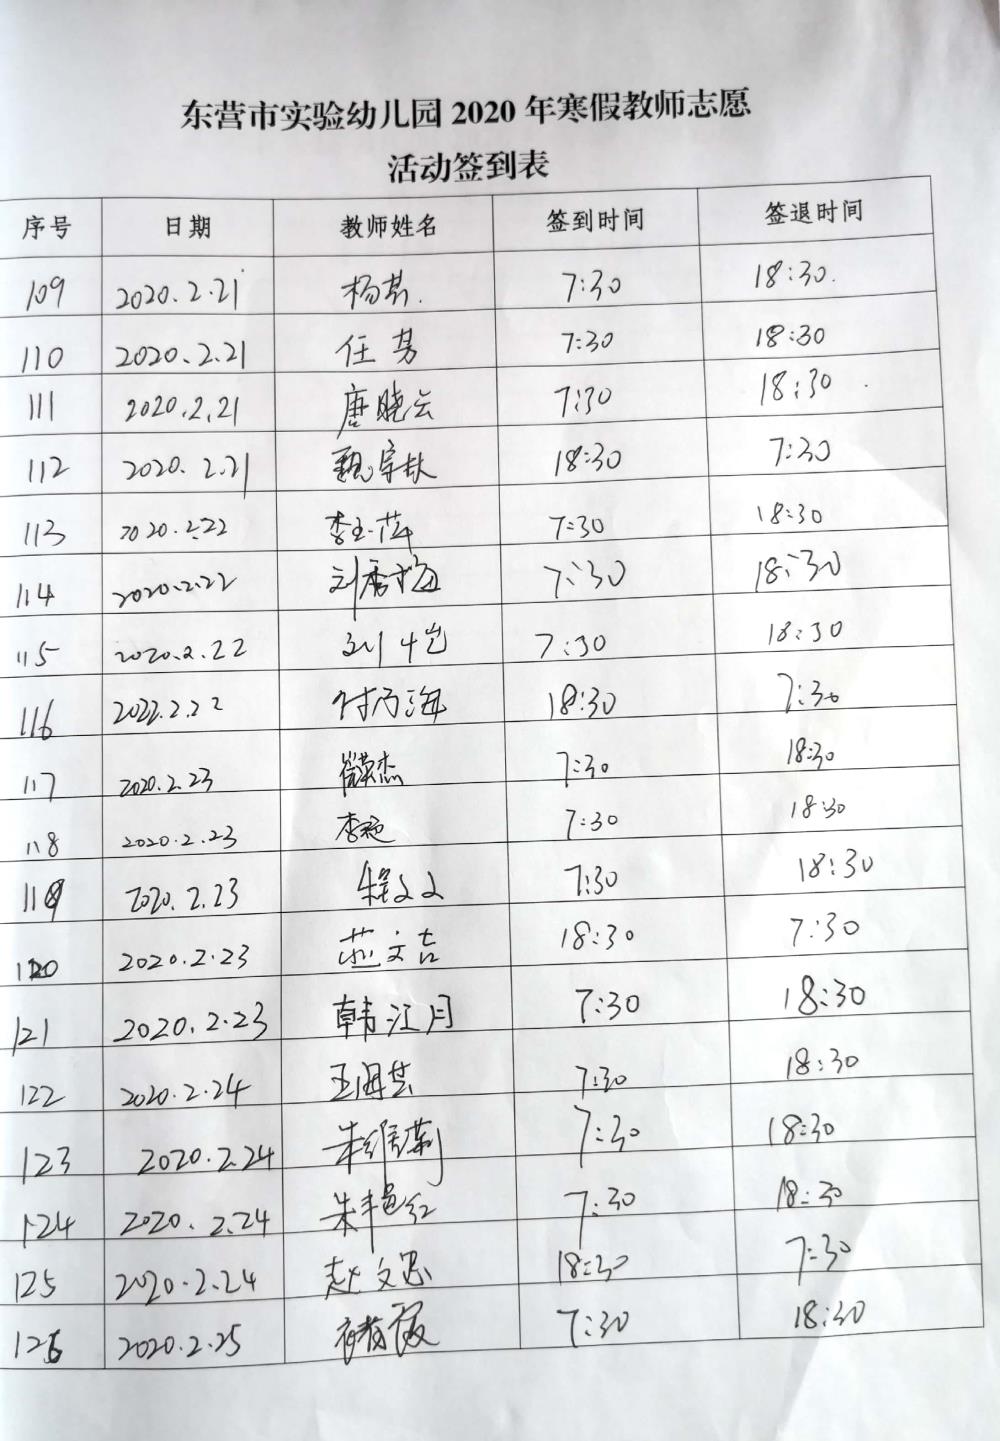 东营市实验幼儿园 2020 年寒假教师志愿
活动签到表
序号 日期 教师姓名 签到时间 签退时间
109 2020.2.21 杨 7:30 18:30
110 2020.2.21 任 7:30 18:30
111 2020.2.21 唐晓云 7:30 18:30
112 2020.2.21 魏 18:30 7:30
113 2020.2.22 李玉萍 7:30 18:30
114 2020.2.22 刘秀梅 7:30 18:30
115 2020.2.22 刘 7:30 18:30
116 2022.2.22 付乃海 18:30 7:30
117 2020.2.23 7:30 18:30
118 2020.2.23 李艳 7:30 18:30
119 2020.2.23 程文文 7:30 18:30
120 2020.2.23 燕文吉 18:30 7:30
121 2020.2.23 韩江月 7:30 18:30
122 2020.2.24 王 7:30 18:30
123 2020.2.24 朱维莉 7:30 18:30
124 2020.2.24 朱艳红 7:30 18:30
125 2020.2.24 赵文思 18:30 7:30
126 2020.2.25 7:30 18:30